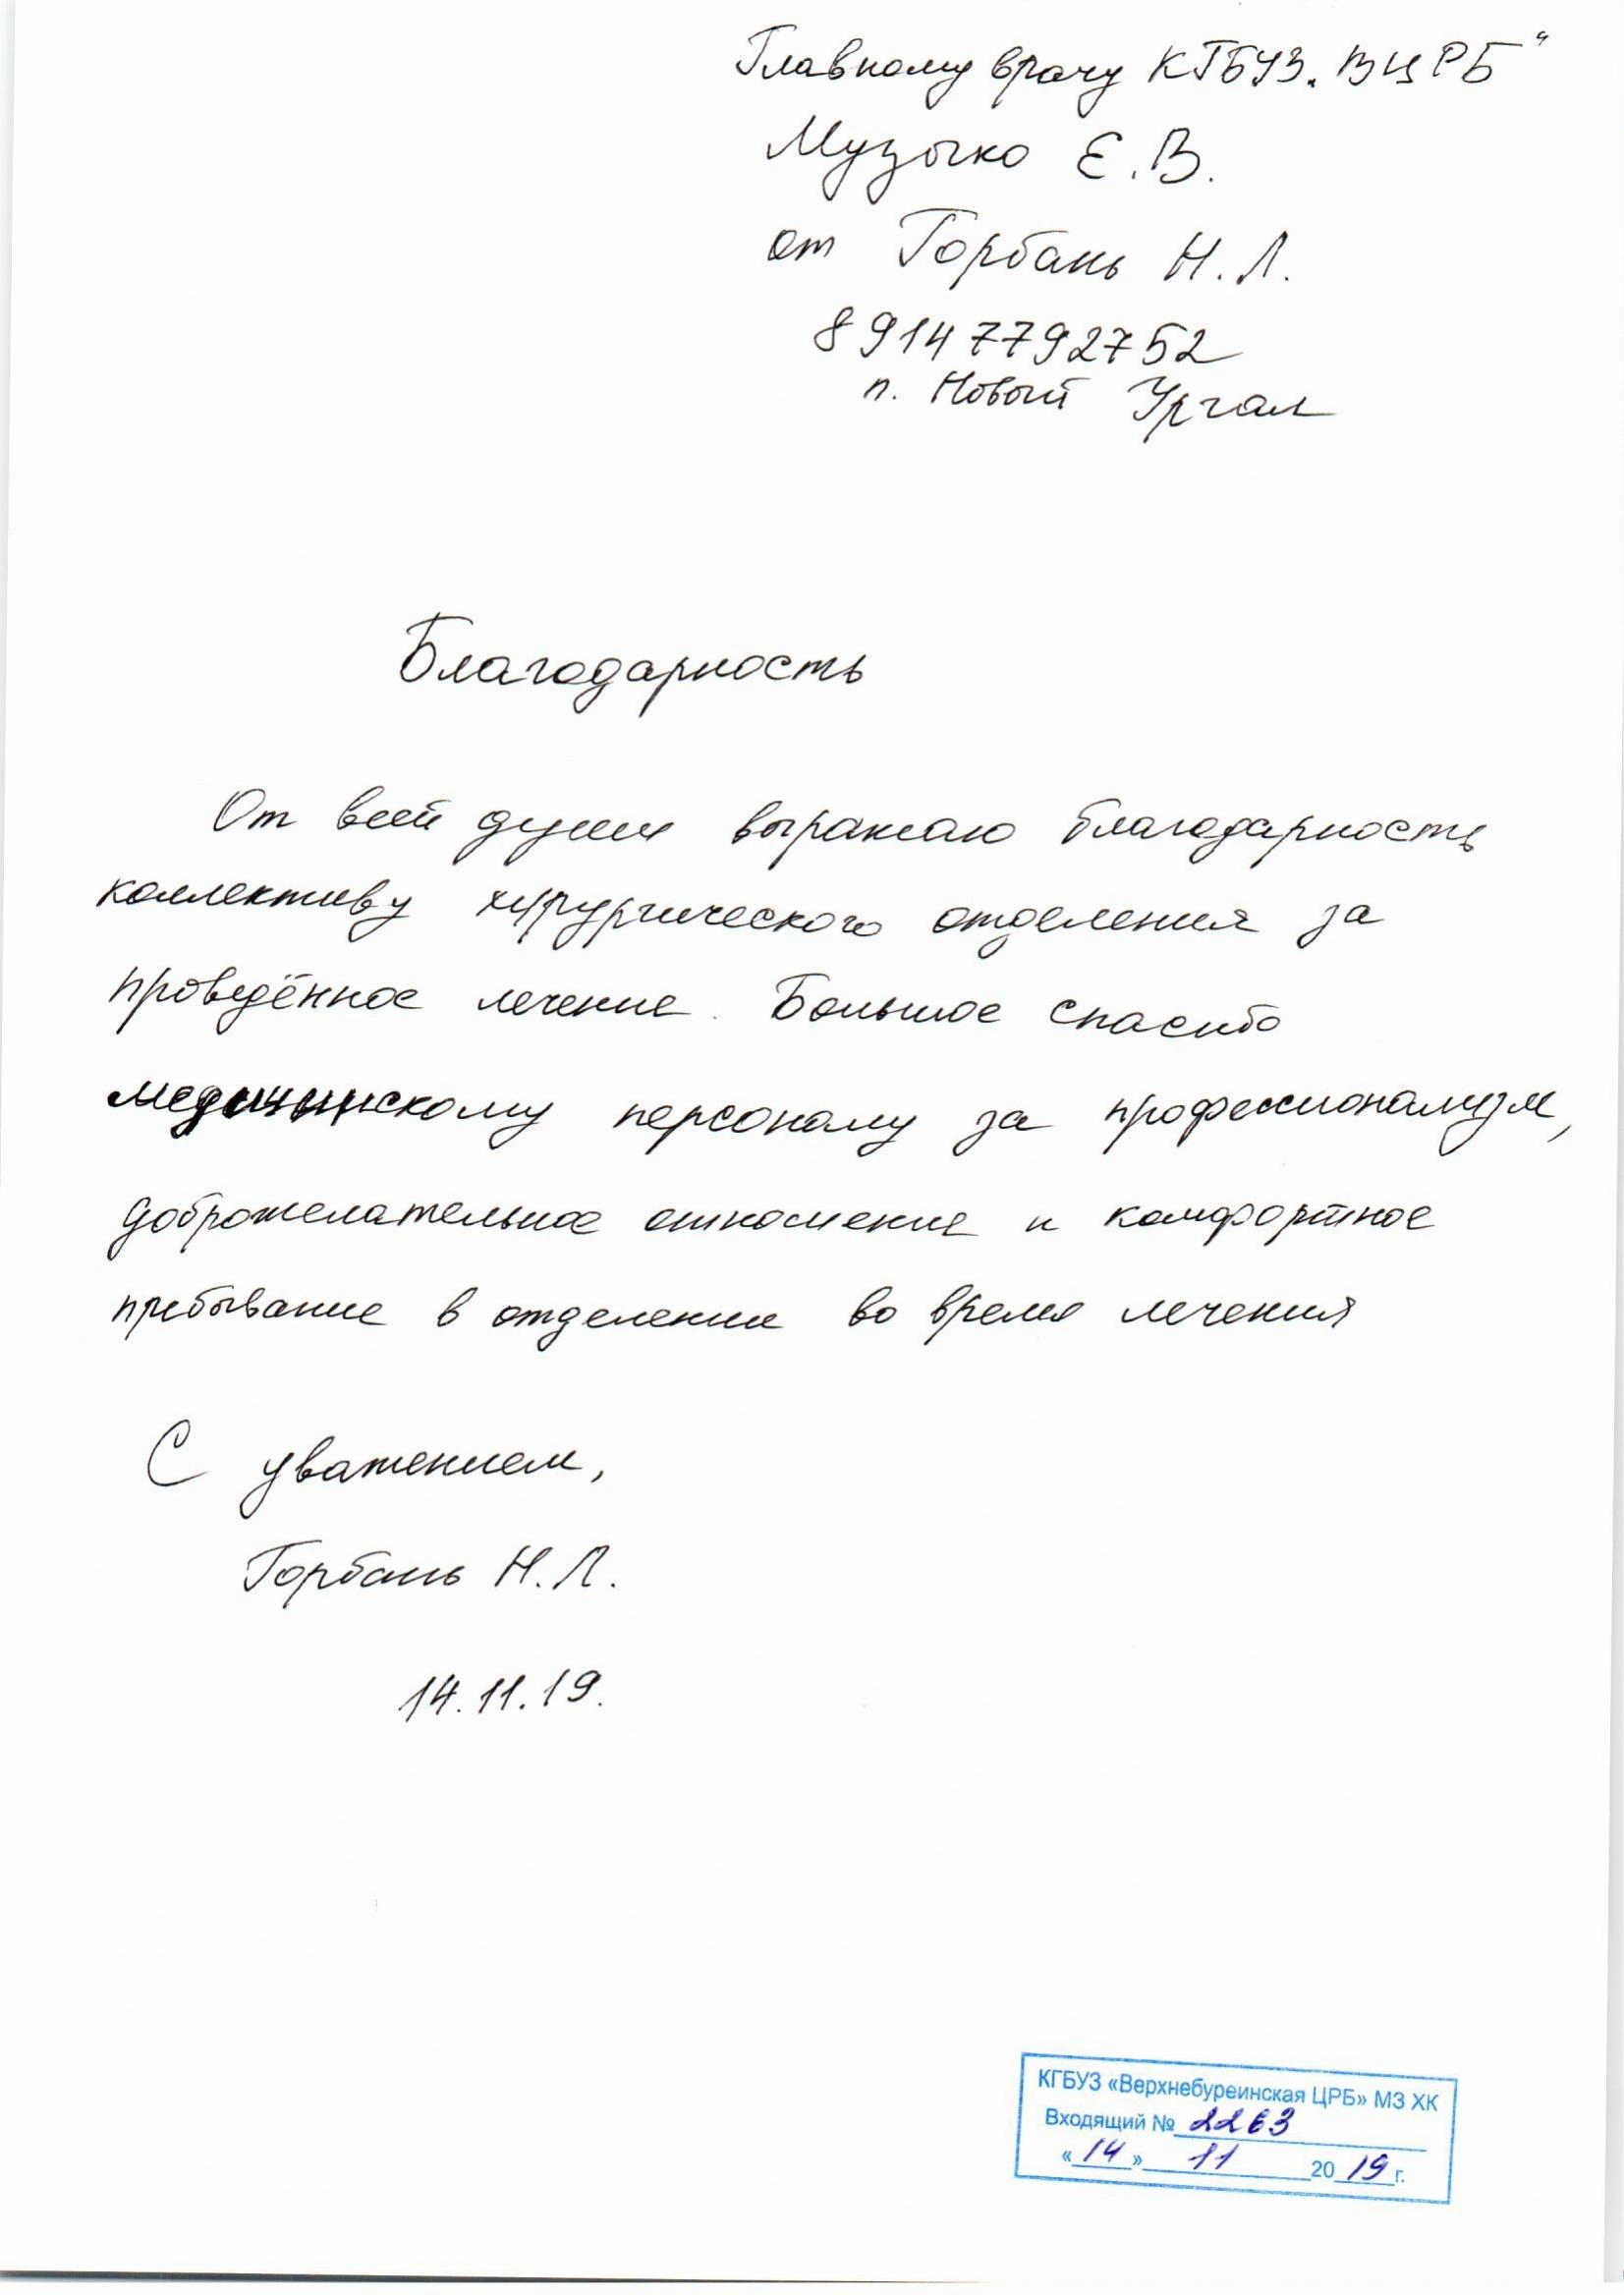 Главному врачу КГБУЗ „ВЦРБ“
Музыко Е.В.
от Горбань Н.Л.
89147792752
п. Новый Ургал
Благодарность
От всей души выражаю благодарность
коллективу хирургического отделения за
проведённое лечение. Большое спасибо
медицинскому персоналу за профессионализм,
доброжелательное отношение и комфортное
пребывание в отделении во время лечения
С уважением,
Горбань Н.Л.
14.11.19.
КГБУЗ «Верхнебуреинская ЦРБ» МЗ ХК
Входящий № 2263
«14» 11 2019 г.